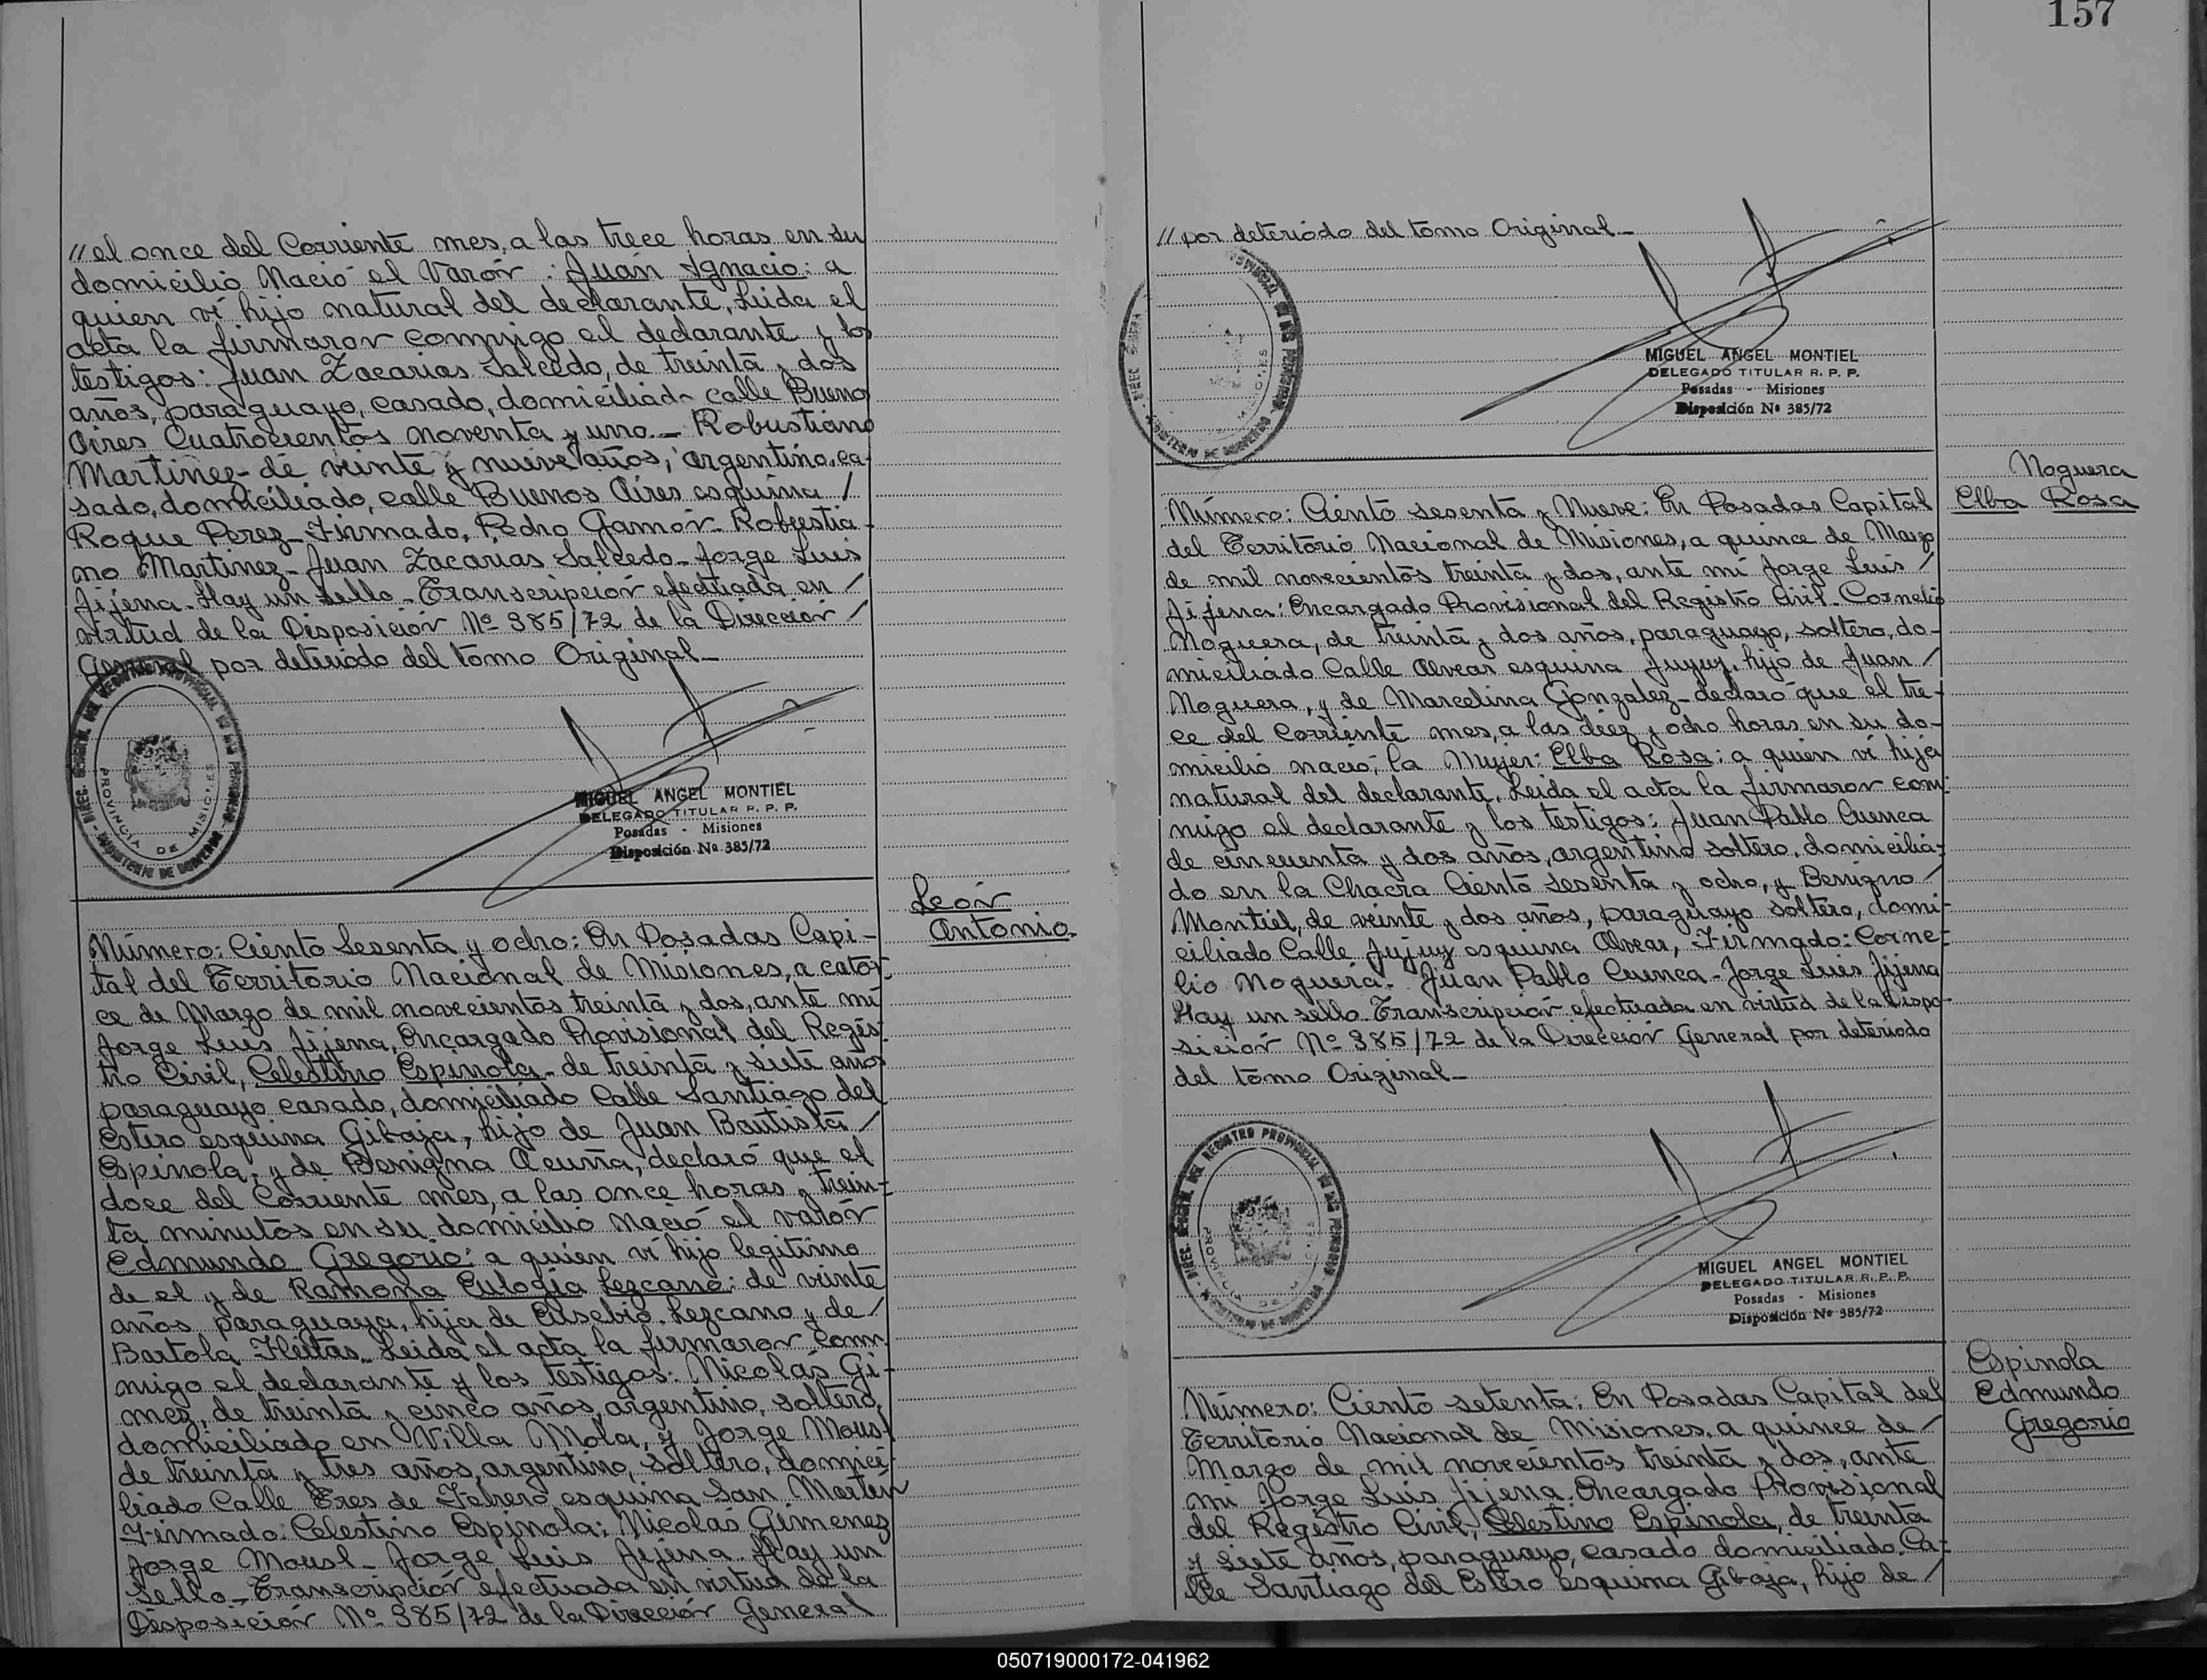 // el once del Corriente mes, a las trece horas en su
domicilio Nació el Varón: Juan Ignacio: a
quien ví hijo natural del declarante, Leida el
acta la firmaron conmigo el declarante y los
testigos: Juan Zacarias Salcedo, de treinta y dos
años, paraguayo, casado, domiciliado calle Buenos
Aires Cuatrocientos noventa y uno.- Robustiano
Martinez- de veinte y nueve años, argentino, ca-
sado, domiciliado, calle Buenos Aires esquina /
Roque Perez- Firmado, Pedro Gamón- Robustia-
no Martinez- Juan Zacarias Salcedo- Jorge Luis
Jijena- Hay un sello- Transcripción efectuada en /
virtud de la Disposición Nº 385/72 de la Dirección /
General por deteriodo del tomo Original-
DIREC. GENERAL DEL REGISTRO PROVINCIAL DE LAS PERSONAS - MINISTERIO DE GOBIERNO
PROVINCIA DE MISIONES
MIGUEL ANGEL MONTIEL
DELEGADO TITULAR R. P. P.
Posadas - Misiones
Disposición Nº 385/72
León
Antonio
Número: Ciento Sesenta y ocho: En Posadas Capi-
tal del Territorio Nacional de Misiones, a cator-
ce de Marzo de mil novecientos treinta y dos, ante mí
Jorge Luis Jijena, Encargado Provisional del Regis-
tro Civil, Celestino Espinola- de treinta y siete años
paraguayo casado, domiciliado Calle Santiago del
Estero esquina Gibaja, hijo de Juan Bautista /
Espinola; y de Benigna Acuña, declaró que el
doce del Corriente mes, a las once horas y trein-
ta minutos en su domicilio Nació el varón
Edmundo Gregorio: a quien ví hijo legitimo
de el y de Ramona Eulogia Lezcano: de veinte
años paraguaya, hija de Eusebio Lezcano y de /
Bartola Fleitas. Leida el acta la firmaron con-
migo el declarante y los testigos: Nicolás Gi-
mez, de treinta y cinco años, argentino, soltero,
domiciliado en Villa Mola, y Jorge Mousl
de treinta y tres años, argentino, soltero, domici-
liado Calle Tres de Febrero esquina San Martín
Firmado: Celestino Espinola; Nicolas Gimenez
Jorge Mousl- Jorge Luis Jijena. Hay un
Sello- Transcripción efectuada en virtud de la
Disposición Nº 385/72 de la Dirección General
157
// por deteriodo del tomo Original-
MIGUEL ANGEL MONTIEL
DELEGADO TITULAR R. P. P.
Posadas - Misiones
Disposición Nº 385/72
Noguera
Elba Rosa
Número: Ciento sesenta y Nueve: En Posadas Capital
del Territorio Nacional de Misiones, a quince de Marzo
de mil novecientos treinta y dos, ante mí Jorge Luis /
Jijena: Encargado Provisional del Registro Civil- Cornelio
Noguera, de treinta y dos años, paraguayo, soltero, do-
miciliado Calle Alvear esquina Jujuy, hijo de Juan /
Noguera, y de Marcelina Gonzalez- declaró que el tre-
ce del Corriente mes, a las diez y ocho horas en su do-
micilio nació, la Mujer: Elba Rosa: a quien ví hija
natural del declarante. Leida el acta la firmaron con-
migo el declarante y los testigos: Juan Pablo Cuenca
de cincuenta y dos años, argentino soltero, domicilia-
do en la Chacra Ciento Sesenta y ocho, y Benigno /
Montiel, de veinte y dos años, paraguayo soltero, domi-
ciliado Calle Jujuy esquina Alvear, Firmado: Corne-
lio Noguera- Juan Pablo Cuenca- Jorge Luis Jijena
Hay un sello- Transcripción efectuada en virtud de la Dispo-
sición Nº 385/72 de la Dirección General por deteriodo
del tomo Original-
DIREC. GENERAL DEL REGISTRO PROVINCIAL DE LAS PERSONAS - MINISTERIO DE GOBIERNO
PROVINCIA DE MISIONES
MIGUEL ANGEL MONTIEL
DELEGADO TITULAR R. P. P.
Posadas - Misiones
Disposición Nº 385/72
Espinola
Edmundo
Gregorio
Número: Ciento setenta: En Posadas Capital del
Territorio Nacional de Misiones, a quince de /
Marzo de mil novecientos treinta y dos, ante
mi Jorge Luis Jijena. Encargado Provisional
del Registro Civil, Celestino Espinola, de treinta
y siete años, paraguayo, casado domiciliado, Ca-
lle Santiago del Estero esquina Gibaja, hijo de /
050719000172-041962